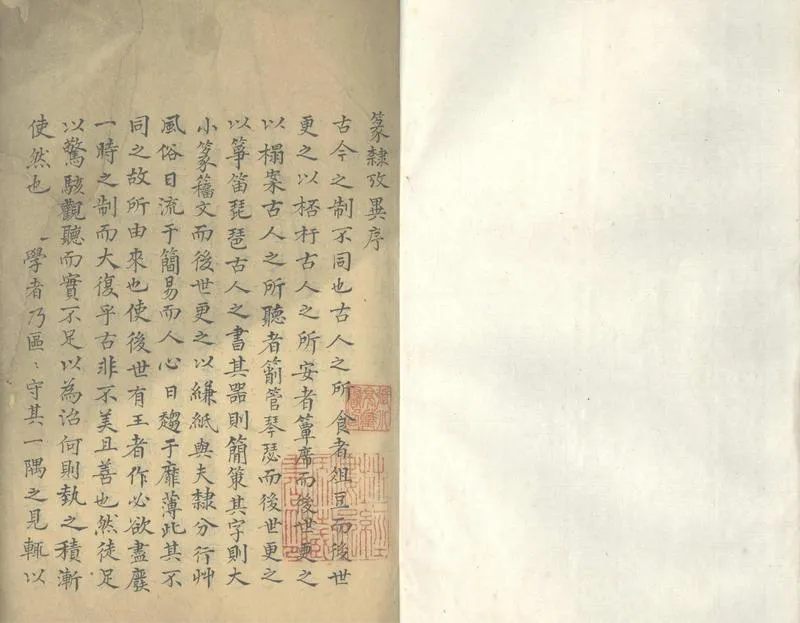 篆隸攷異序
古今之制不同也古人之所食者俎豆而後世
更之以桮杅古人之所安者簟席而後世更之
以榻案古人之所聽者箾管琴瑟而後世更之
以箏笛琵琶古人之書其器則簡策其字則大
小篆籀文而後世更之以縑紙與夫隸分行艸
風俗日流于簡易而人心日趨于靡薄此其不
同之故所由來也使後世有王者作必欲盡廢
一時之制而大復乎古非不美且善也然徒足
以驚駭觀聽而實不足以為治何則埶之積漸
使然也 一學者乃區〻守其一隅之見輒以